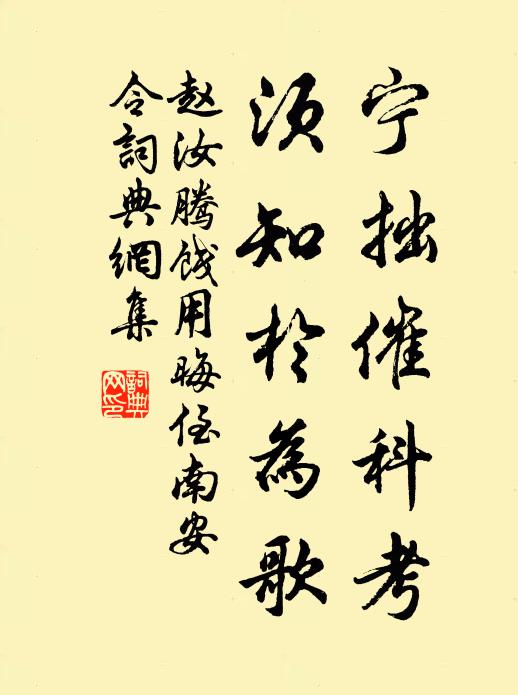 宁拙催科考
须知於為歌
赵汝騰饯用晦侄南安
令詞典網集
詞典
网印